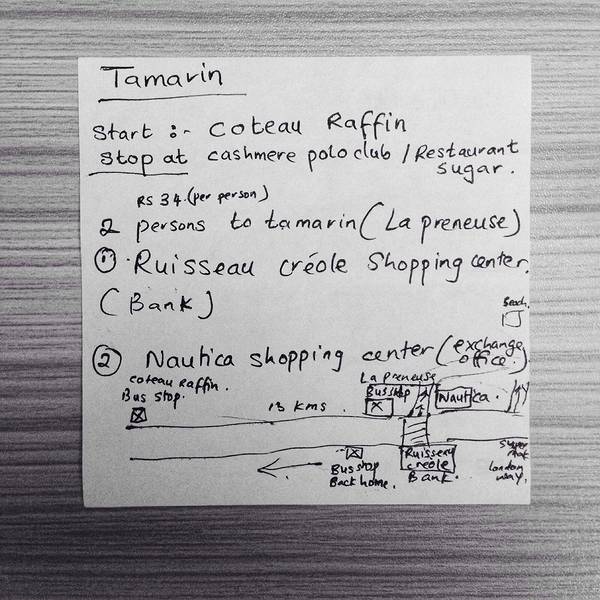 Tamarin
Start :- Coteau Raffin
Stop at cashmere polo club / Restaurant
Sugar.
RS 34.(per person)
2 persons to tamarin (La preneuse)
① Ruisseau créole Shopping center.
(Bank)
Beach.
② Nautica shopping center (exchange
office.)
coteau raffin.
Bus stop.
La preneuse
Bus stop
Nautica.
13 kms.
Bus stop
Back home.
Ruisseau
creole
Bank.
Super
london
way.